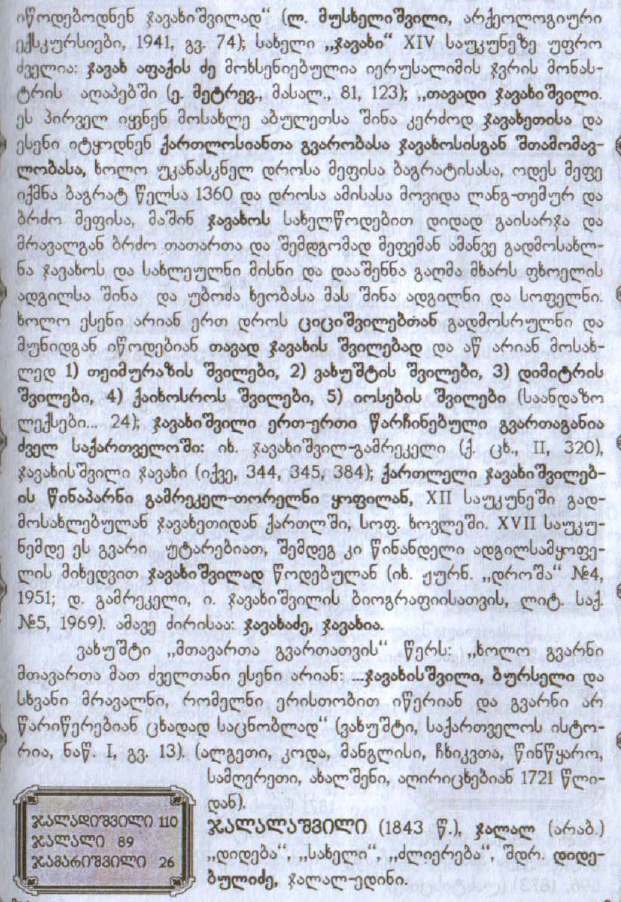 იწოდებოდნენ ჯავახიშვილად“ (ლ. მუსხელიშვილი, არქეოლოგიური
ექსკურსიები, 1941, გვ. 74); სახელი „ჯავახი“ XIV საუკუნეზე უფრო
ძველია: ჯავახ აფაქის ძე მოხსენიებულია იერუსალიმის ჯვრის მონას-
ტრის აღაპებში (ე. მეტრევ., მასალ., 81, 123); „თავადი ჯავახიშვილი.
ეს პირველ იყვნენ მოსახლე აბულეთსა შინა კერძოდ ჯავახეთისა და
ესენი იტყოდნენ ქართლოსიანთა გვარობასა ჯავახოსისგან შთამომავ-
ლობასა, ხოლო უკანასკნელ დროსა მეფისა ბაგრატისასა, ოდეს მეფე
იქმნა ბაგრატ წელსა 1360 და დროსა ამისასა მოვიდა ლანგ-თემურ და
ბრძო მეფისა, მაშინ ჯავახოს სახელწოდებით დიდად გაისარჯა და
მრავალგან ბრძო თათართა და შემდგომად მეფემან ამანვე გადმოსახლ-
ნა ჯავახოს და სახლეულნი მისნი და დააშენნა გაღმა მხარს ფხოელის
ადგილსა შინა და უბოძა ხეობასა მას შინა ადგილნი და სოფელნი.
ხოლო ესენი არიან ერთ დროს ციციშვილებთან გადმოსრულნი და
მუნიდგან იწოდებიან თავად ჯავახის შვილებად და აწ არიან მოსახ-
ლედ 1) თეიმურაზის შვილები, 2) ვახუშტის შვილები, 3) დიმიტრის
შვილები, 4) ქაიხოსროს შვილები, 5) იოსების შვილები (საანდაზო
ლექსები... 24); ჯავახიშვილი ერთ-ერთი წარჩინებული გვართაგანია
ძველ საქართველოში: იხ. ჯავახიშვილ-გამრეკელი (ქ. ცხ., II, 320),
ჯავახისშვილი ჯავახი (იქვე, 344, 345, 384); ქართლელი ჯავახიშვილებ-
ის წინაპარნი გამრეკელ-თორელნი ყოფილან, XII საუკუნეში გად-
მოსახლებულან ჯავახეთიდან ქართლში, სოფ. ხოვლეში. XVII საუკუ-
ნემდე ეს გვარი უტარებიათ, შემდეგ კი წინანდელი ადგილსამყოფე-
ლის მიხედვით ჯავახიშვილად წოდებულან (იხ. ჟურნ. „დროშა“ №4,
1951; დ. გამრეკელი, ი. ჯავახიშვილის ბიოგრაფიისათვის, ლიტ. საქ.
№5, 1969). ამავე ძირისაა: ჯავახაძე, ჯავახია.
ვახუშტი „მთავართა გვართათვის“ წერს: „ხოლო გვარნი
მთავართა მათ ძველთანი ესენი არიან: ...ჯავახისშვილი, ბურსელი და
სხვანი მრავალნი, რომელნი ერისთობით იწერიან და გვარნი არ
წარიწერებიან ცხადად საცნობლად“ (ვახუშტი, საქართველოს ისტო-
რია, ნაწ. I, გვ. 13). (ალგეთი, კოდა, მანგლისი, ჩხიკვთა, წინწყარო,
სამღერეთი, ახალშენი, აღირიცხებიან 1721 წლი-
დან).
ჯალალაშვილი (1843 წ.), ჯალალ (არაბ.)
„დიდება“, „სახელი“, „ძლიერება“, შდრ. დიდე-
ბულიძე, ჯალალ-ედინი.
ჯალადიშვილი 110
ჯალალი 89
ჯამარიშვილი 26